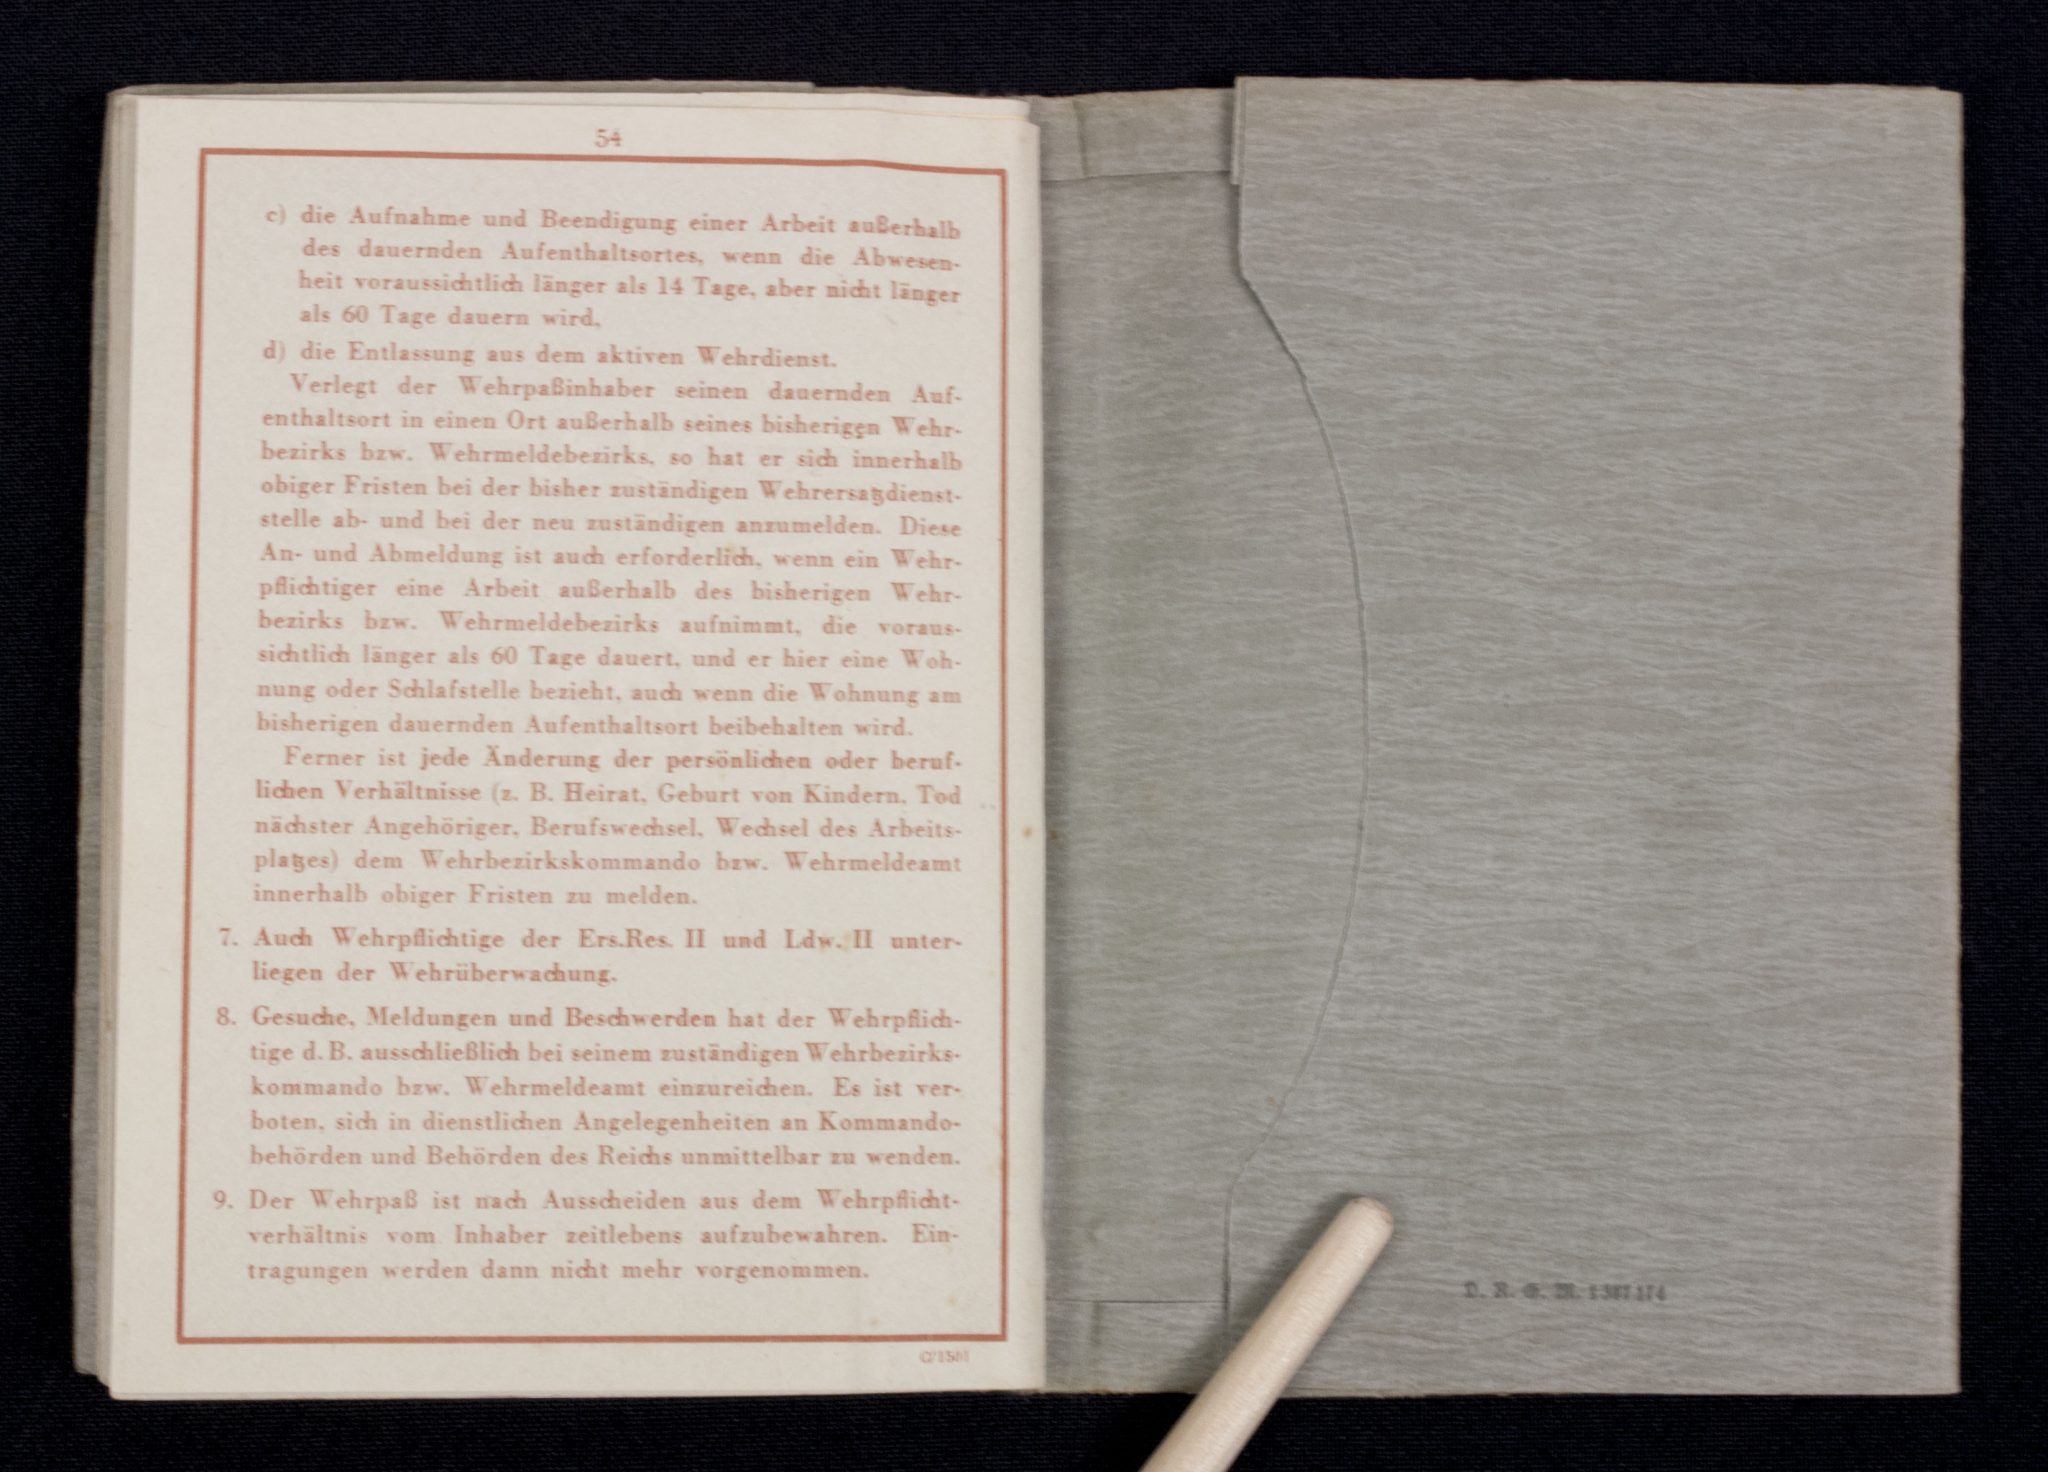 54
c) die Aufnahme und Beendigung einer Arbeit außerhalb
des dauernden Aufenthaltsortes, wenn die Abwesen-
heit voraussichtlich länger als 14 Tage, aber nicht länger
als 60 Tage dauern wird,
d) die Entlassung aus dem aktiven Wehrdienst.
Verlegt der Wehrpaßinhaber seinen dauernden Auf-
enthaltsort in einen Ort außerhalb seines bisherigen Wehr-
bezirks bzw. Wehrmeldebezirks, so hat er sich innerhalb
obiger Fristen bei der bisher zuständigen Wehrersatzdienst-
stelle ab- und bei der neu zuständigen anzumelden. Diese
An- und Abmeldung ist auch erforderlich, wenn ein Wehr-
pflichtiger eine Arbeit außerhalb des bisherigen Wehr-
bezirks bzw. Wehrmeldebezirks aufnimmt, die voraus-
sichtlich länger als 60 Tage dauert, und er hier eine Woh-
nung oder Schlafstelle bezieht, auch wenn die Wohnung am
bisherigen dauernden Aufenthaltsort beibehalten wird.
Ferner ist jede Änderung der persönlichen oder beruf-
lichen Verhältnisse (z. B. Heirat, Geburt von Kindern, Tod
nächster Angehöriger, Berufswechsel, Wechsel des Arbeits-
platzes) dem Wehrbezirkskommando bzw. Wehrmeldeamt
innerhalb obiger Fristen zu melden.
7. Auch Wehrpflichtige der Ers.Res. II und Ldw. II unter-
liegen der Wehrüberwachung.
8. Gesuche, Meldungen und Beschwerden hat der Wehrpflich-
tige d. B. ausschließlich bei seinem zuständigen Wehrbezirks-
kommando bzw. Wehrmeldeamt einzureichen. Es ist ver-
boten, sich in dienstlichen Angelegenheiten an Kommando-
behörden und Behörden des Reichs unmittelbar zu wenden.
9. Der Wehrpaß ist nach Ausscheiden aus dem Wehrpflicht-
verhältnis vom Inhaber zeitlebens aufzubewahren. Ein-
tragungen werden dann nicht mehr vorgenommen.
D. R. G. M.